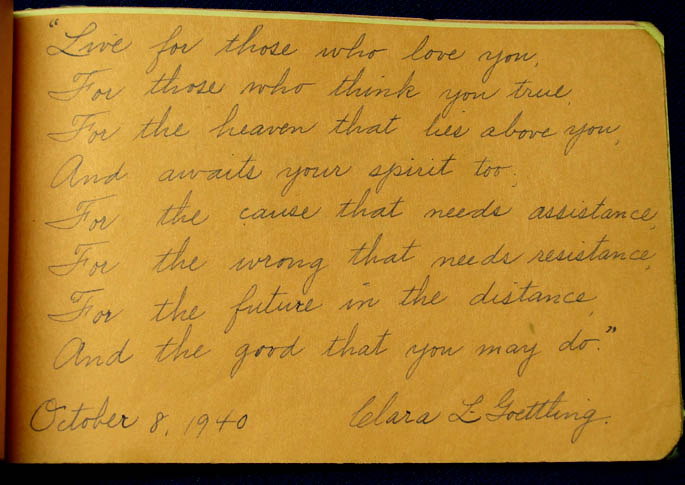 "Live for those who love you,
For those who think you true,
For the heaven that lies above you,
And awaits your spirit too,
For the cause that needs assistance,
For the wrong that needs resistance,
For the future in the distance,
And the good that you may do."
October 8, 1940 Clara L. Goettling.